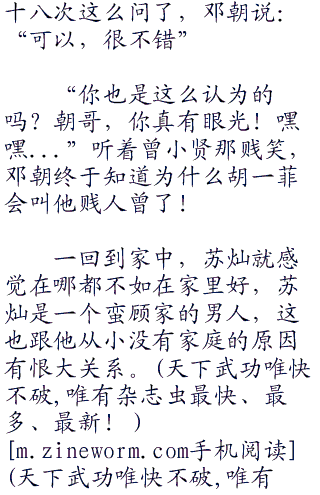 十八次这么问了，邓朝说：
“可以，很不错”
“你也是这么认为的
吗？朝哥，你真有眼光！嘿
嘿...”听着曾小贤那贱笑，
邓朝终于知道为什么胡一菲
会叫他贱人曾了！
一回到家中，苏灿就感
觉在哪都不如在家里好，苏
灿是一个蛮顾家的男人，这
也跟他从小没有家庭的原因
有恨大关系。(天下武功唯快
不破,唯有杂志虫最快、最
多、最新！)
[m.zineworm.com手机阅读]
(天下武功唯快不破,唯有